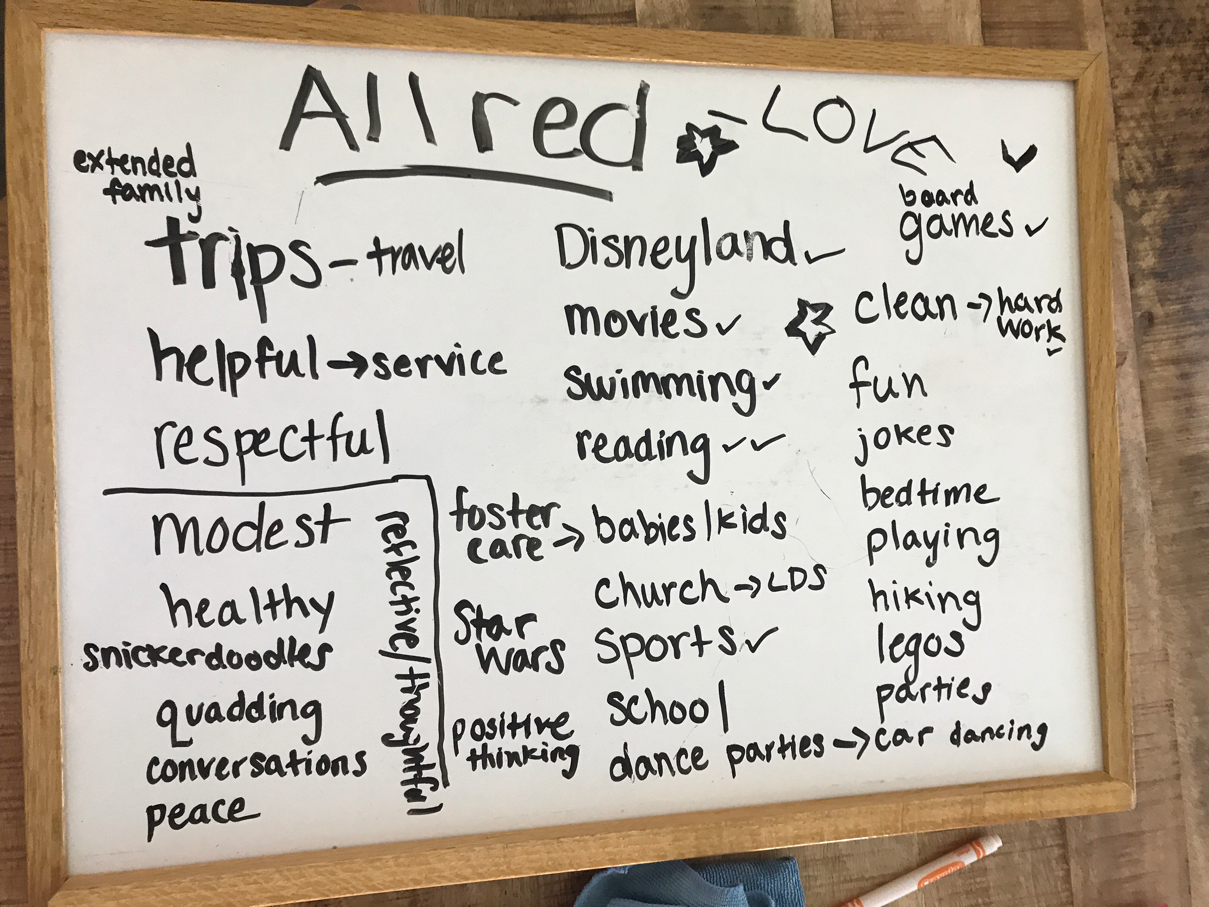 Allred - LOVE
extended
family
trips - travel
helpful → service
respectful
modest
healthy
snickerdoodles
quadding
conversations
peace
reflective/thoughtful
Disneyland ✓
movies ✓
swimming ✓
reading ✓✓
foster
care → babies/kids
church → LDS
Star
Wars
sports ✓
school
positive
thinking
dance parties → car dancing
board
games ✓
clean → hard
work ✓
fun
jokes
bedtime
playing
hiking
legos
parties